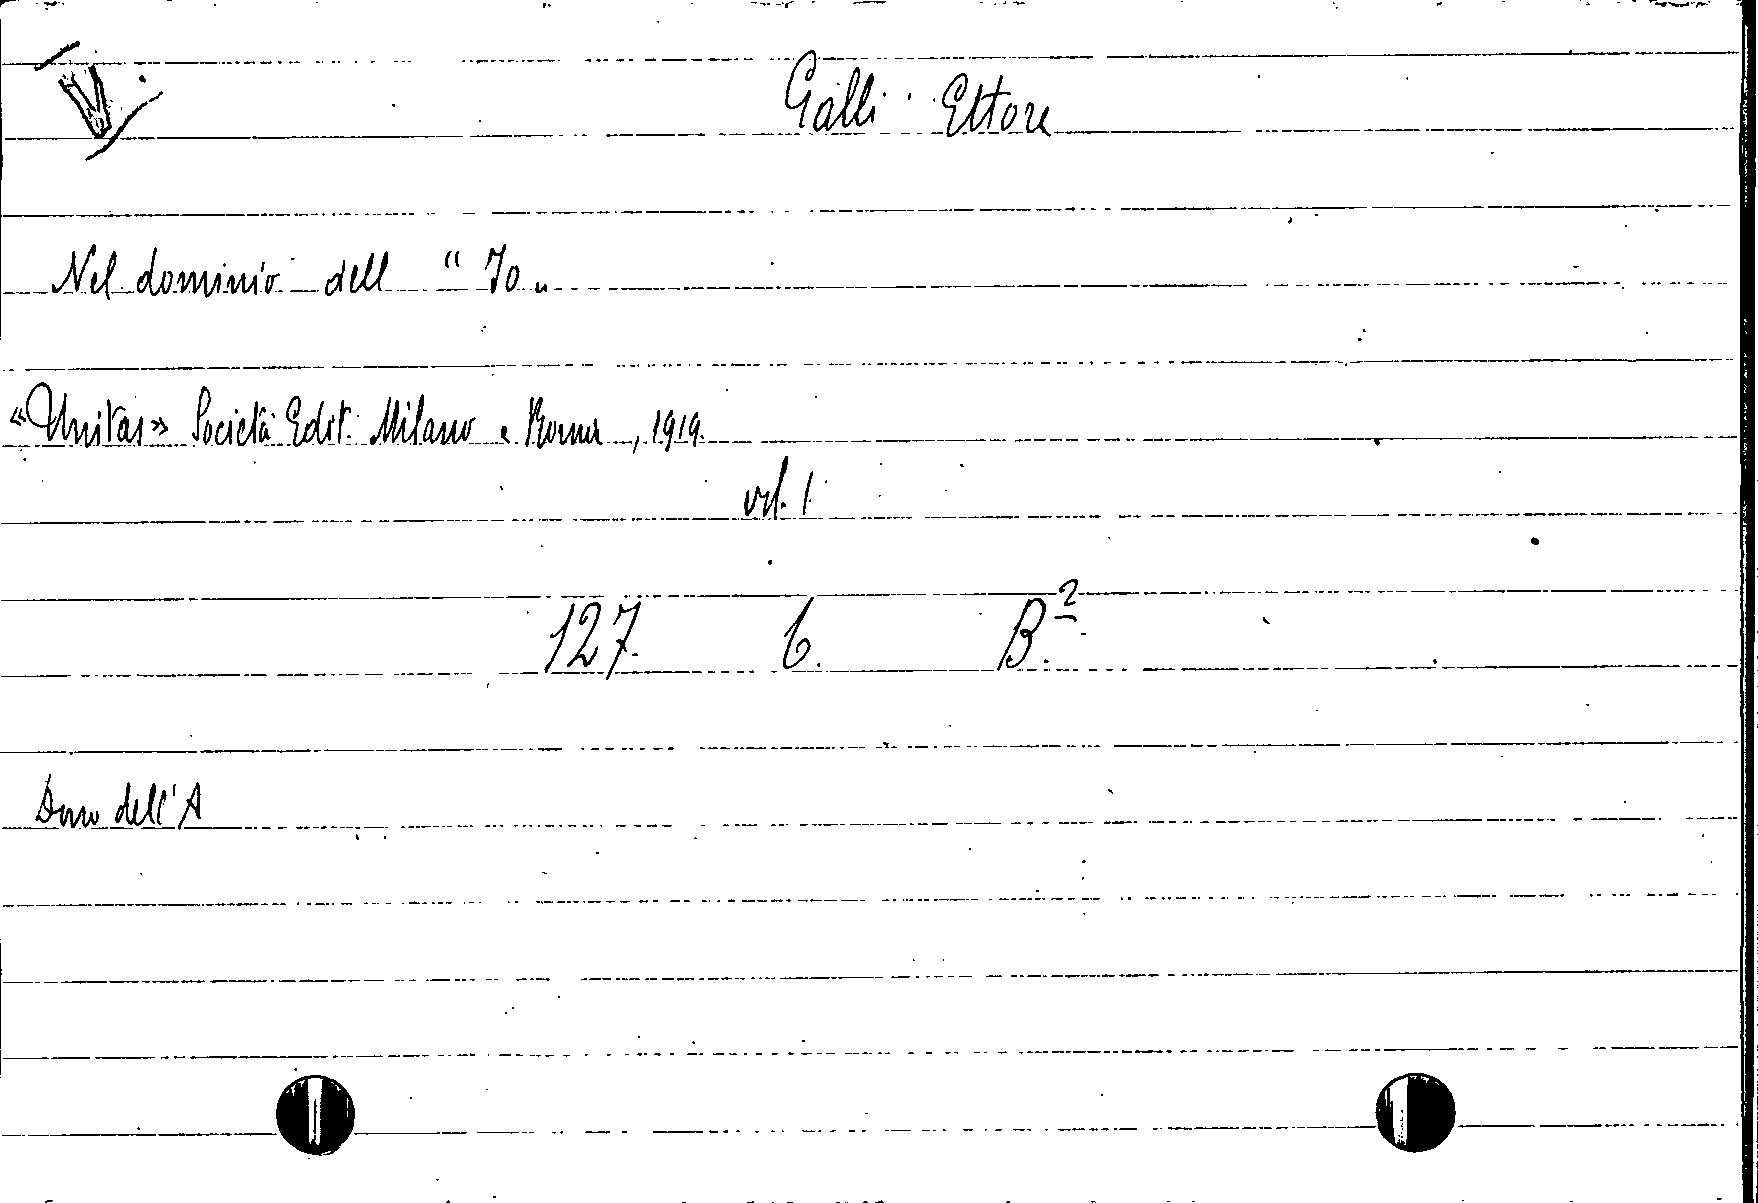 Galli Ettore
Nel dominio dell " Io „
«Unitas» Società Edit. Milano e Roma, 1919.
vol. 1
127. 6. B.²
Dono dell'A